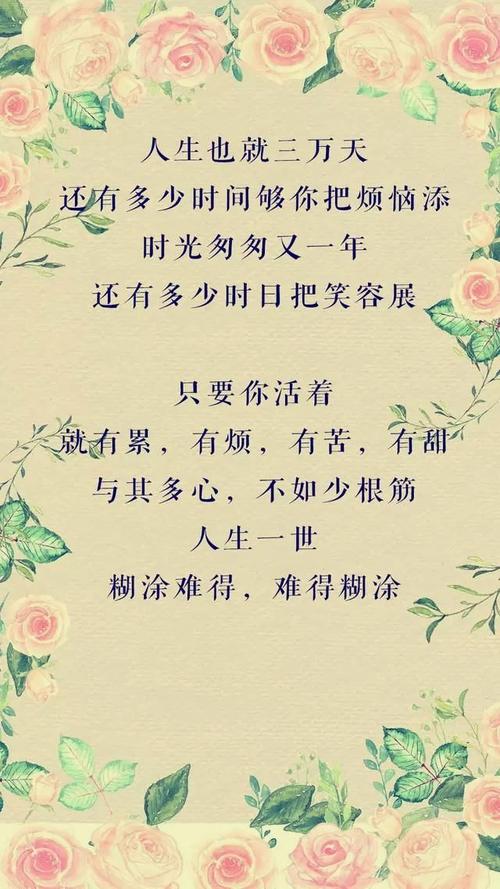 人生也就三万天
还有多少时间够你把烦恼添
时光匆匆又一年
还有多少时日把笑容展
只要你活着
就有累，有烦，有苦，有甜
与其多心，不如少根筋
人生一世
糊涂难得，难得糊涂